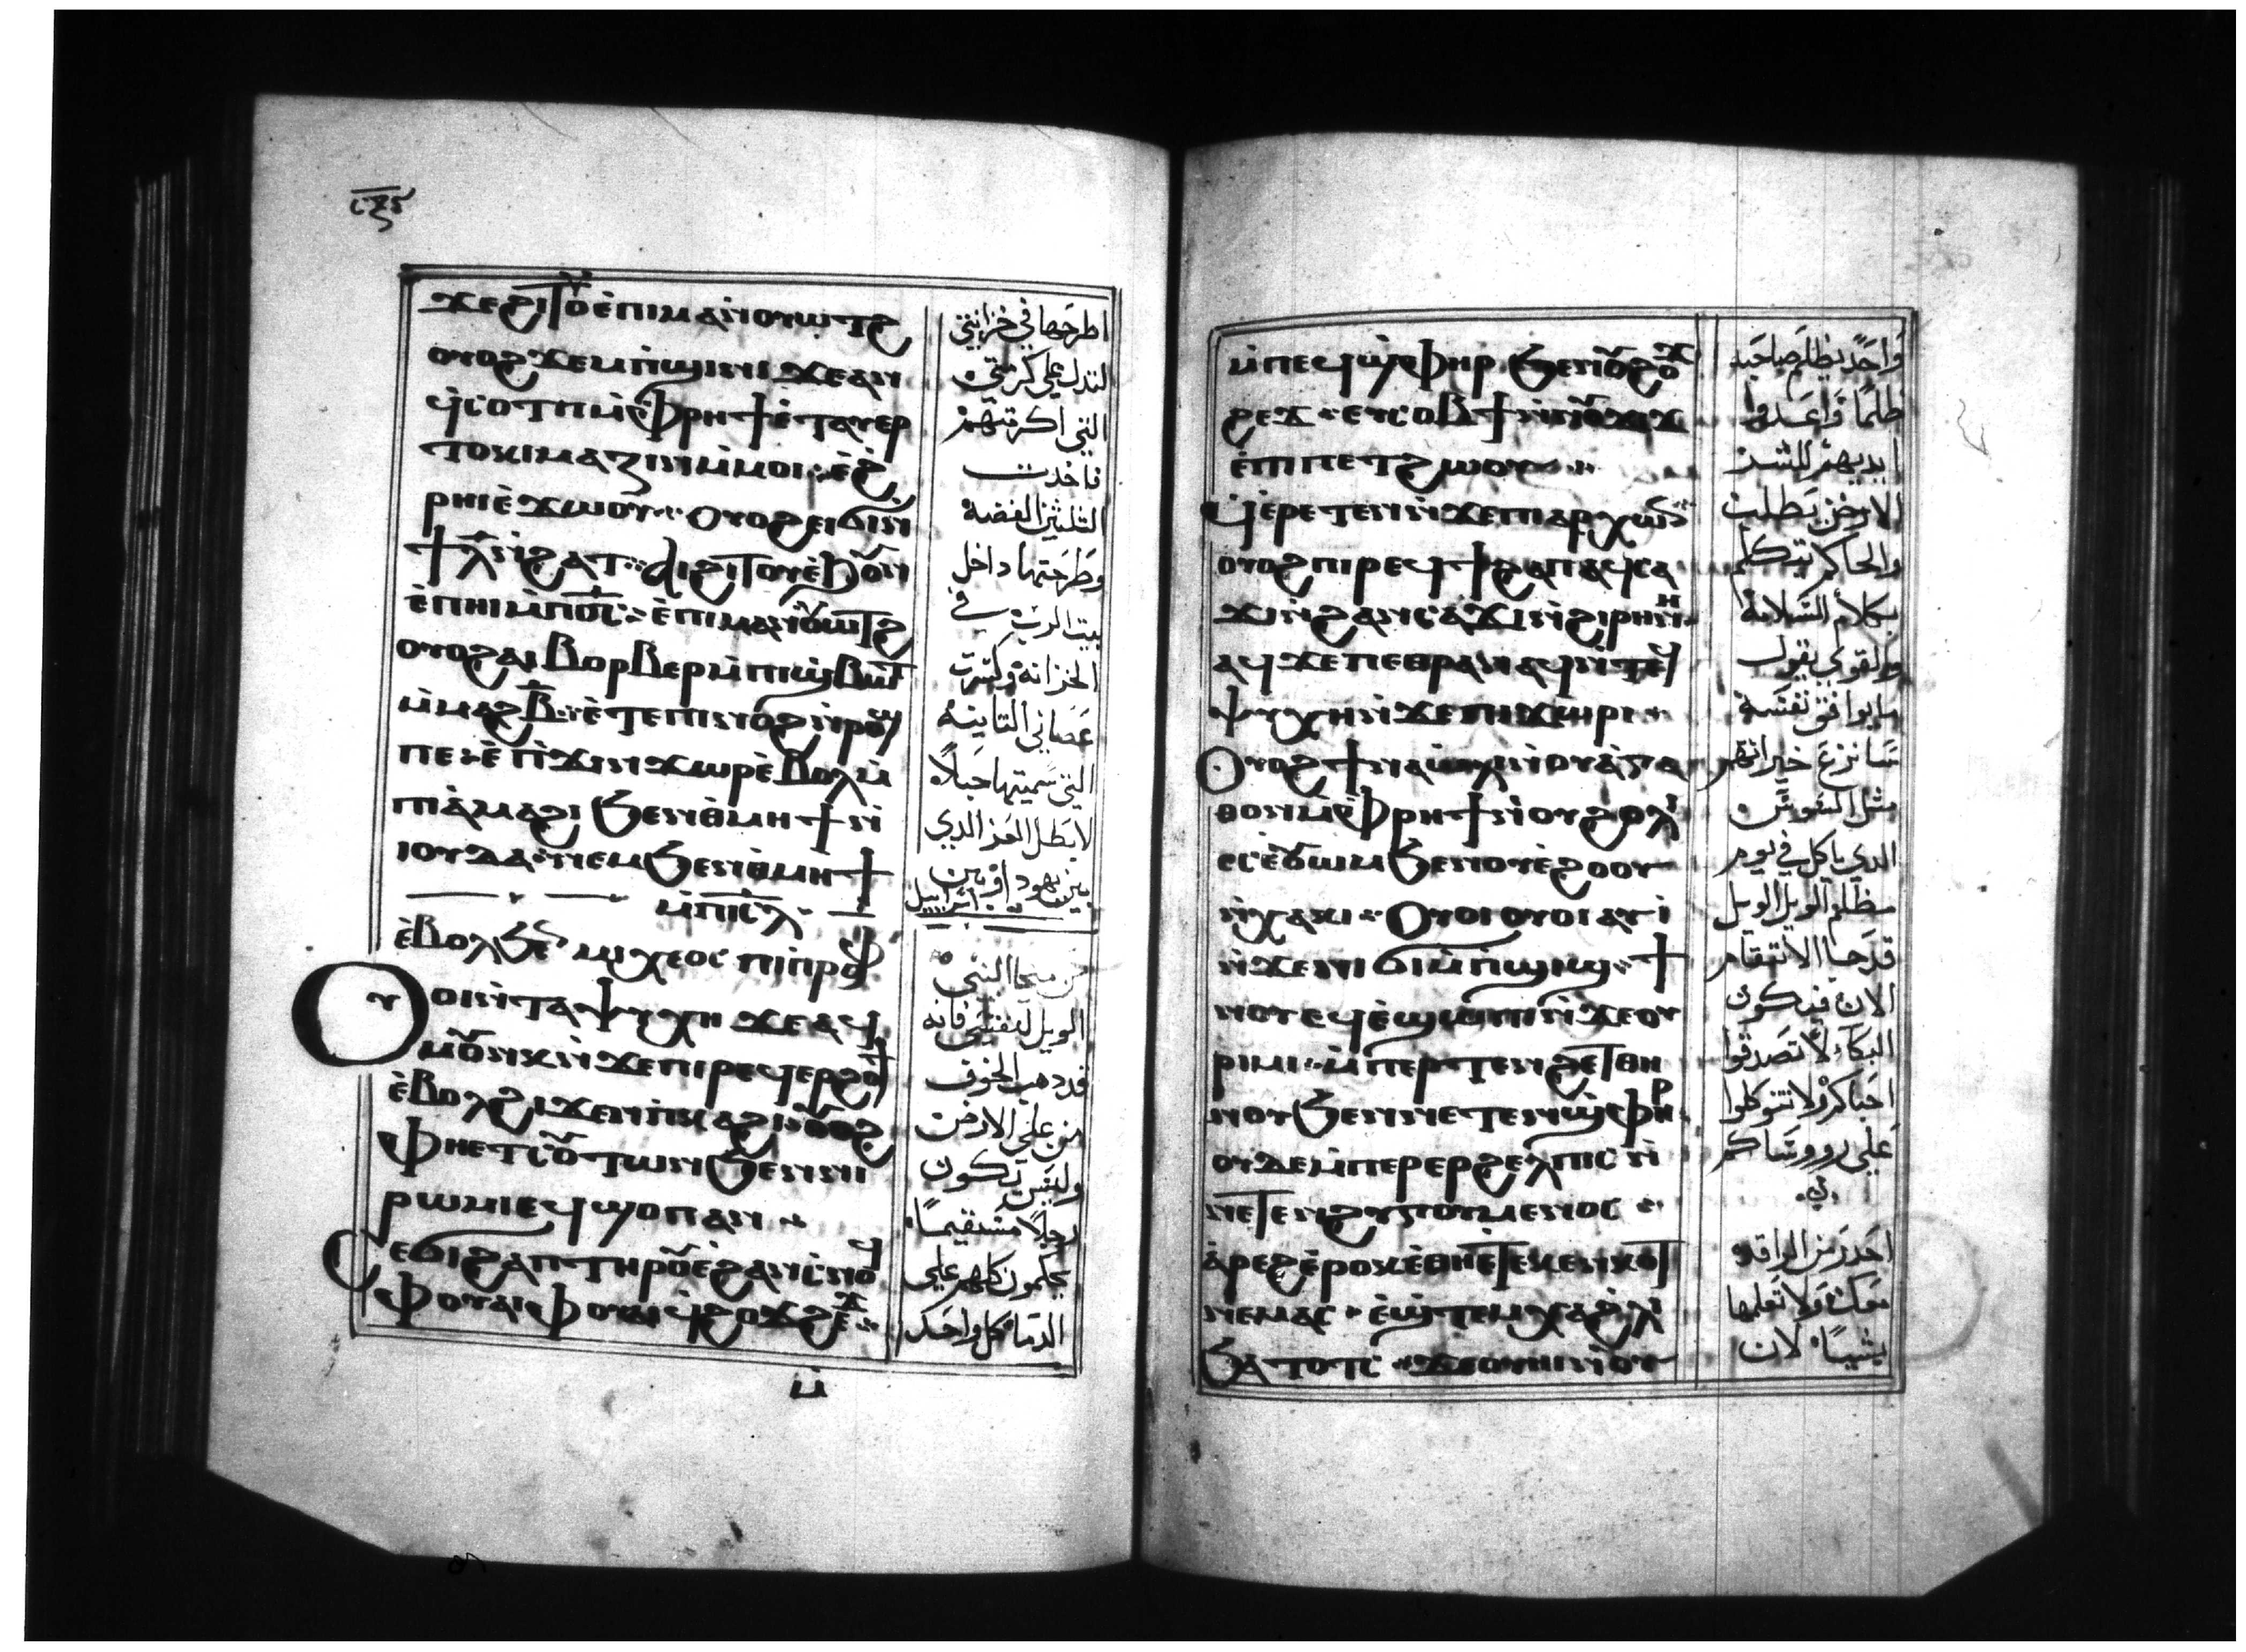 ϫⲉϩⲓⲧⲟⲩ ⲉ̀ⲡⲓⲙⲁⲛ̀ⲟⲩⲱⲧϩ
ⲟⲩⲟϩ ϫⲉⲙⲡ̀ϣⲓⲛⲓ ϫⲉⲁⲛ
ϥ̀ⲥⲟⲧⲡ ⲙ̀ⲫ̀ⲣⲏϯ ⲉ̀ⲧⲁⲩⲉⲣ
ⲇⲟⲕⲓⲙⲁⲍⲓⲛ ⲙ̀ⲙⲟⲓ ⲉ̀ϩ
ⲣⲏⲓ ⲉ̀ϫⲱⲟⲩ ⲟⲩⲟϩ ⲉⲓϭⲓⲛ
ϯⲗ̅ ⲛ̀ϩⲁⲧ ⲁⲓϩⲓⲧⲟⲩ ⲉ̀ϧⲟⲩⲛ
ⲉ̀ⲡⲏⲓ ⲙ̀ⲡⲟ̅ⲥ̅ ⲉ̀ⲡⲓⲙⲁⲛ̀ⲟⲩⲱⲧϩ
ⲟⲩⲟϩ ⲁⲓⲃⲟⲣⲃⲉⲣ ⲙ̀ⲡⲓϣ̀ⲃⲱⲧ
ⲙ̀ⲙⲁϩⲃ̅ ⲉ̀ⲧⲉⲡⲓⲛⲟϩ ⲛ̀ⲣⲱϣ
ⲡⲉ ⲉ̀ⲡ̀ϫⲓⲛϫⲱⲣ ⲉ̀ⲃⲟⲗ ⲙ̀
ⲡⲓⲁ̀ⲙⲁϩⲓ ϧⲉⲛⲑ̀ⲙⲏϯ ⲛ̀
ⲓⲟⲩⲇⲁ ⲛⲉⲙ ϧⲉⲛⲑ̀ⲙⲏϯ
ⲙ̀ⲡⲓⲥ̅ⲗ̅
ⲉ̀ⲃⲟⲗϧⲉⲛ ⲙⲓⲭⲉⲟⲥ ⲡⲓⲡⲣⲟⲫ
Ⲟⲩⲟⲓ ⲛ̀ⲧⲁⲯⲩⲭⲏ ϫⲉⲁϥ
ⲙⲟⲩⲛⲕ ⲛ̀ϫⲉⲡⲓⲣⲉϥⲉⲣϩⲟϯ
ⲉ̀ⲃⲟⲗϩⲓϫⲉⲛ ⲡ̀ⲕⲁϩⲓ ⲟⲩⲟϩ
ⲫⲏⲉⲧⲥⲟⲩⲧⲱⲛ ϧⲉⲛⲛⲓ
ⲣⲱⲙⲓ ⲉϥϣⲟⲡ ⲁⲛ
ⲥⲉϭⲓϩⲁⲡ ⲧⲏⲣⲟⲩ ⲉ̀ϩⲁⲛⲥ̀ⲛⲟϥ
ⲫⲟⲩⲁⲓ ⲫⲟⲩⲁⲓ ϥ̀ϩⲟϫϩⲉϫ
ⲙ̀
اطرحها في خزانتي
لتدل علي كرمتي
التي اكرمتهم
فاخدت
التلتين الفضة
وطرحتها داخل
بيت الرب في
الخزانة وكسرت
عصاتي التانية
التي سميتها حبلاً
لابطل العز الدي
بين يهودا وبين اسراييل
من ميخا النبي
الويل لنفسي فانه
قد دهب الخوف
من علي الارض
وليس يكون
رجلاً مستقيماً
يحكمون كلهم علي
الدما كل واحد
ⲙ̀ⲡⲉϥϣ̀ⲫⲏⲣ ϧⲉⲛⲟⲩϩⲟϫ
ϩⲉϫ ⲉⲩⲥⲟⲃϯ ⲛ̀ⲛⲟⲩϫⲓϫ
ⲉ̀ⲡⲓⲡⲉⲧϩⲱⲟⲩ
ϥ̀ⲉ̀ⲣⲉⲧⲉⲛ ⲛ̀ϫⲉⲡⲓⲁⲣⲭⲱⲛ
ⲟⲩⲟϩ ⲡⲓⲣⲉϥϯϩⲁⲡ ⲁϥⲥⲁ
ϫⲓ ⲛ̀ϩⲁⲛⲥⲁϫⲓ ⲛ̀ϩⲓⲣⲏⲛⲏ
ⲁϥϫⲉ ⲡⲉⲑⲣⲁⲛⲁϥ ⲛ̀ⲧⲉϥ
ⲯⲩⲭⲏ ⲛ̀ϫⲉⲡⲓϫⲱⲣⲓ
Ⲟⲩⲟϩ ϯⲛⲁⲱ̀ⲗⲓ ⲛ̀ⲟⲩⲁ̀ⲅⲁ
ⲑⲟⲛ ⲙ̀ⲫ̀ⲣⲏϯ ⲛ̀ⲟⲩϩⲟⲗⲓ
ⲉⲥⲟⲩⲱⲙ ϧⲉⲛⲟⲩⲉ̀ϩⲟⲟⲩ
ⲛ̀ⲭⲁⲕⲓ Ⲟⲩⲟⲓ ⲟⲩⲟⲓ ⲁⲩⲓ̀
ⲛ̀ϫⲉⲛⲓϭⲓⲙ̀ⲡ̀ϣⲓϣ ϯ
ⲛⲟⲩ ⲉϥⲉ̀ϣⲱⲡⲓ ⲛ̀ϫⲉⲟⲩ
ⲣⲓⲙⲓ ⲙ̀ⲡⲉⲣⲧⲉⲛϩⲉⲧⲑⲏ
ⲛⲟⲩ ϧⲉⲛⲛⲉⲧⲉⲛϣ̀ⲫⲏⲣ
ⲟⲩⲇⲉ ⲙ̀ⲡⲉⲣⲉⲣϩⲉⲗⲡⲓⲥ ⲛ̀
ⲛⲉⲧⲉⲛϩⲩⲅⲟⲩⲙⲉⲛⲟⲥ
ⲁ̀ⲣⲉϩ ⲉ̀ⲣⲟⲕ ⲉ̀ⲑⲏⲉⲧⲉⲕⲉⲛⲕⲟⲧ
ⲛⲉⲙⲁⲥ ⲉ̀ϣⲧⲉⲙⲭⲁϩ̀ⲗⲓ
ϧⲁⲧⲟⲧⲥ ϫⲉⲟⲩⲏⲓ ⲛ̀ⲟⲩ
واحد يظلم صاحبه
ظلماً واعدوا
ايديهم للشر
الاراخن يطلب
والحاكم يتكلم
بكلام السلامة
والقوي يقول
ما يوافق نفسه
سانزع خيراتهم
مثل السوس
الدي ياكل في يوم
مظلم الويل الويل
قد جا الانتقام
الان فيكون
البكاء لا تصدقوا
احباكم ولا تتوكلوا
علي رووساكم
احدر من الراقدة
معك ولا تعلمها
شياً لان